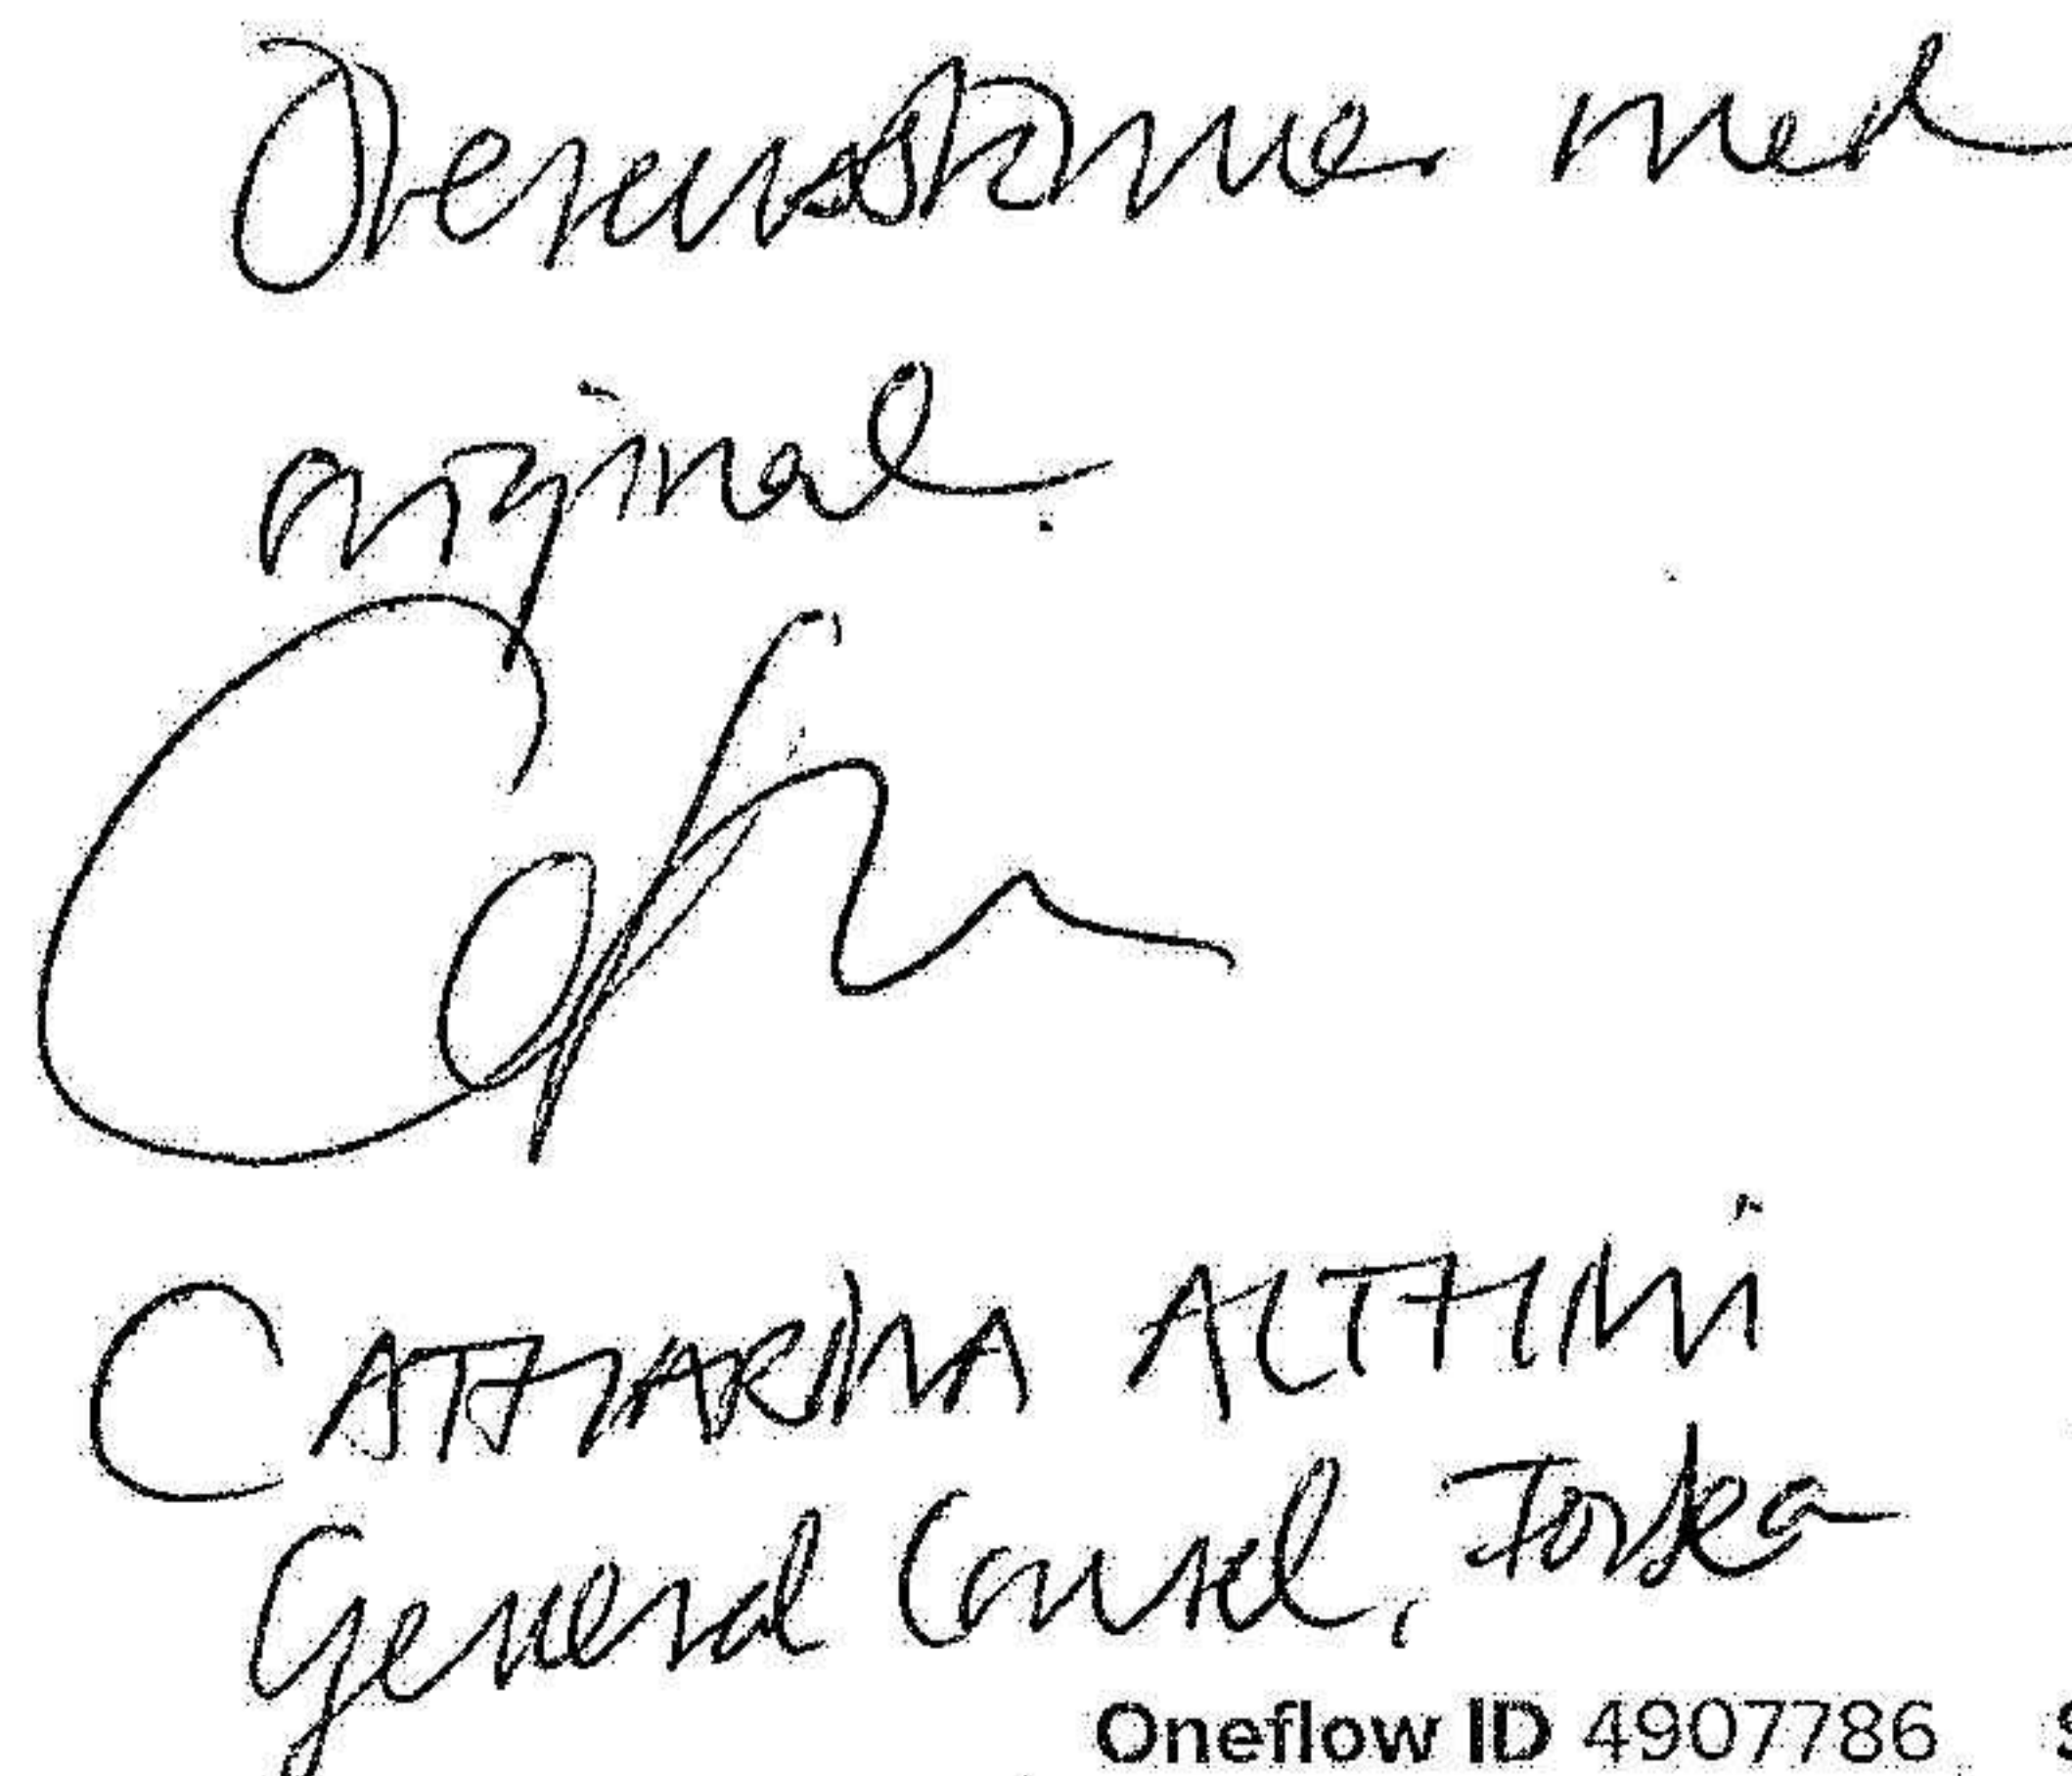 Överensstämmer med
original.
CATHARINA ALTHINI
General Counsel,
Oneflow ID 4907786